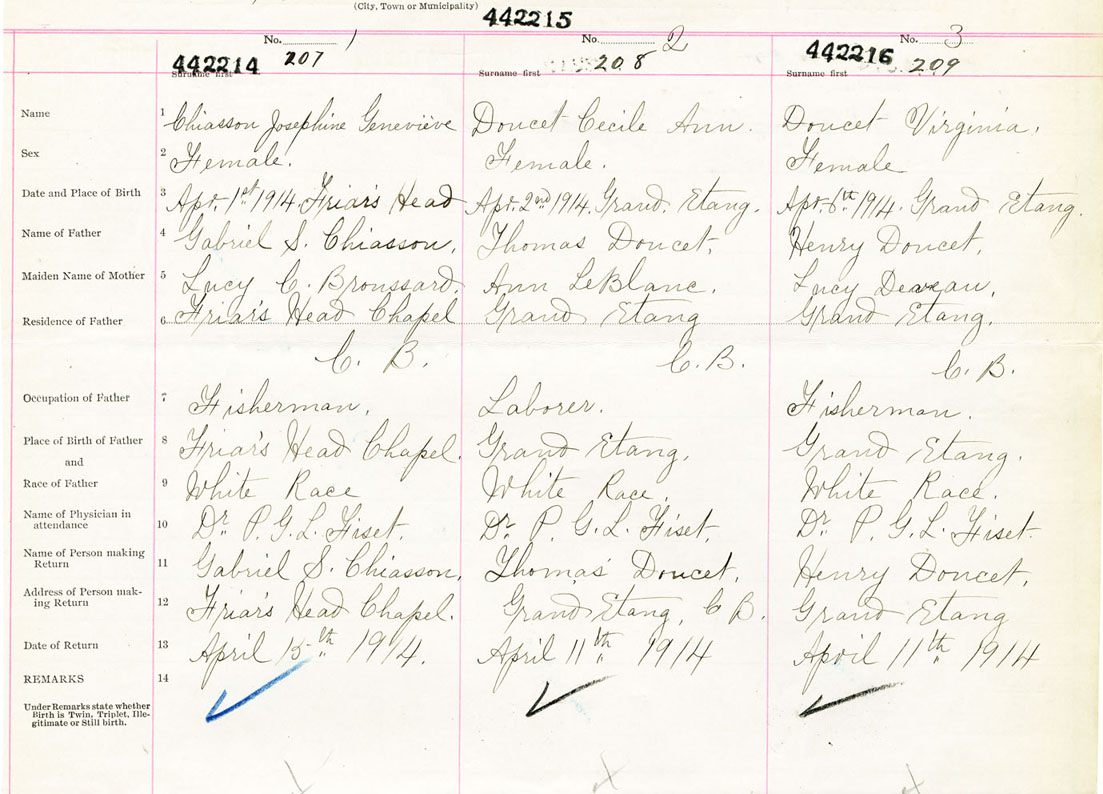 (City, Town or Municipality)
442215
No. 1 No. 2 No. 3
442214 207 208 442216 209
Surname first Surname first Surname first
Name 1 Chiasson Josephine Geneviève Doucet Cecile Ann. Doucet Virginia.
Sex 2 Female. Female. Female
Date and Place of Birth 3 Apr. 1st 1914. Friar's Head Apr. 2nd 1914. Grand. Etang. Apr. 6th 1914. Grand Etang.
Name of Father 4 Gabriel S. Chiasson, Thomas Doucet, Henry Doucet,
Maiden Name of Mother 5 Lucy C. Broussard. Ann LeBlanc. Lucy Deveau,
Residence of Father 6 Friar's Head Chapel Grand Etang Grand Etang.
C. B. C. B. C. B.
Occupation of Father 7 Fisherman. Laborer. Fisherman.
Place of Birth of Father 8 Friar's Head Chapel. Grand Etang. Grand Etang.
and
Race of Father 9 White Race White Race. White Race.
Name of Physician in
attendance 10 Dr. P. G. L. Fiset. Dr. P. G. L. Fiset. Dr. P. G. L. Fiset.
Name of Person making
Return 11 Gabriel S. Chiasson. Thomas Doucet. Henry Doucet,
Address of Person mak-
ing Return 12 Friar's Head Chapel. Grand Etang, C B. Grand Etang
Date of Return 13 April 15th 1914. April 11th 1914 April 11th 1914
REMARKS 14
Under Remarks state whether
Birth is Twin, Triplet, Ille-
gitimate or Still birth.